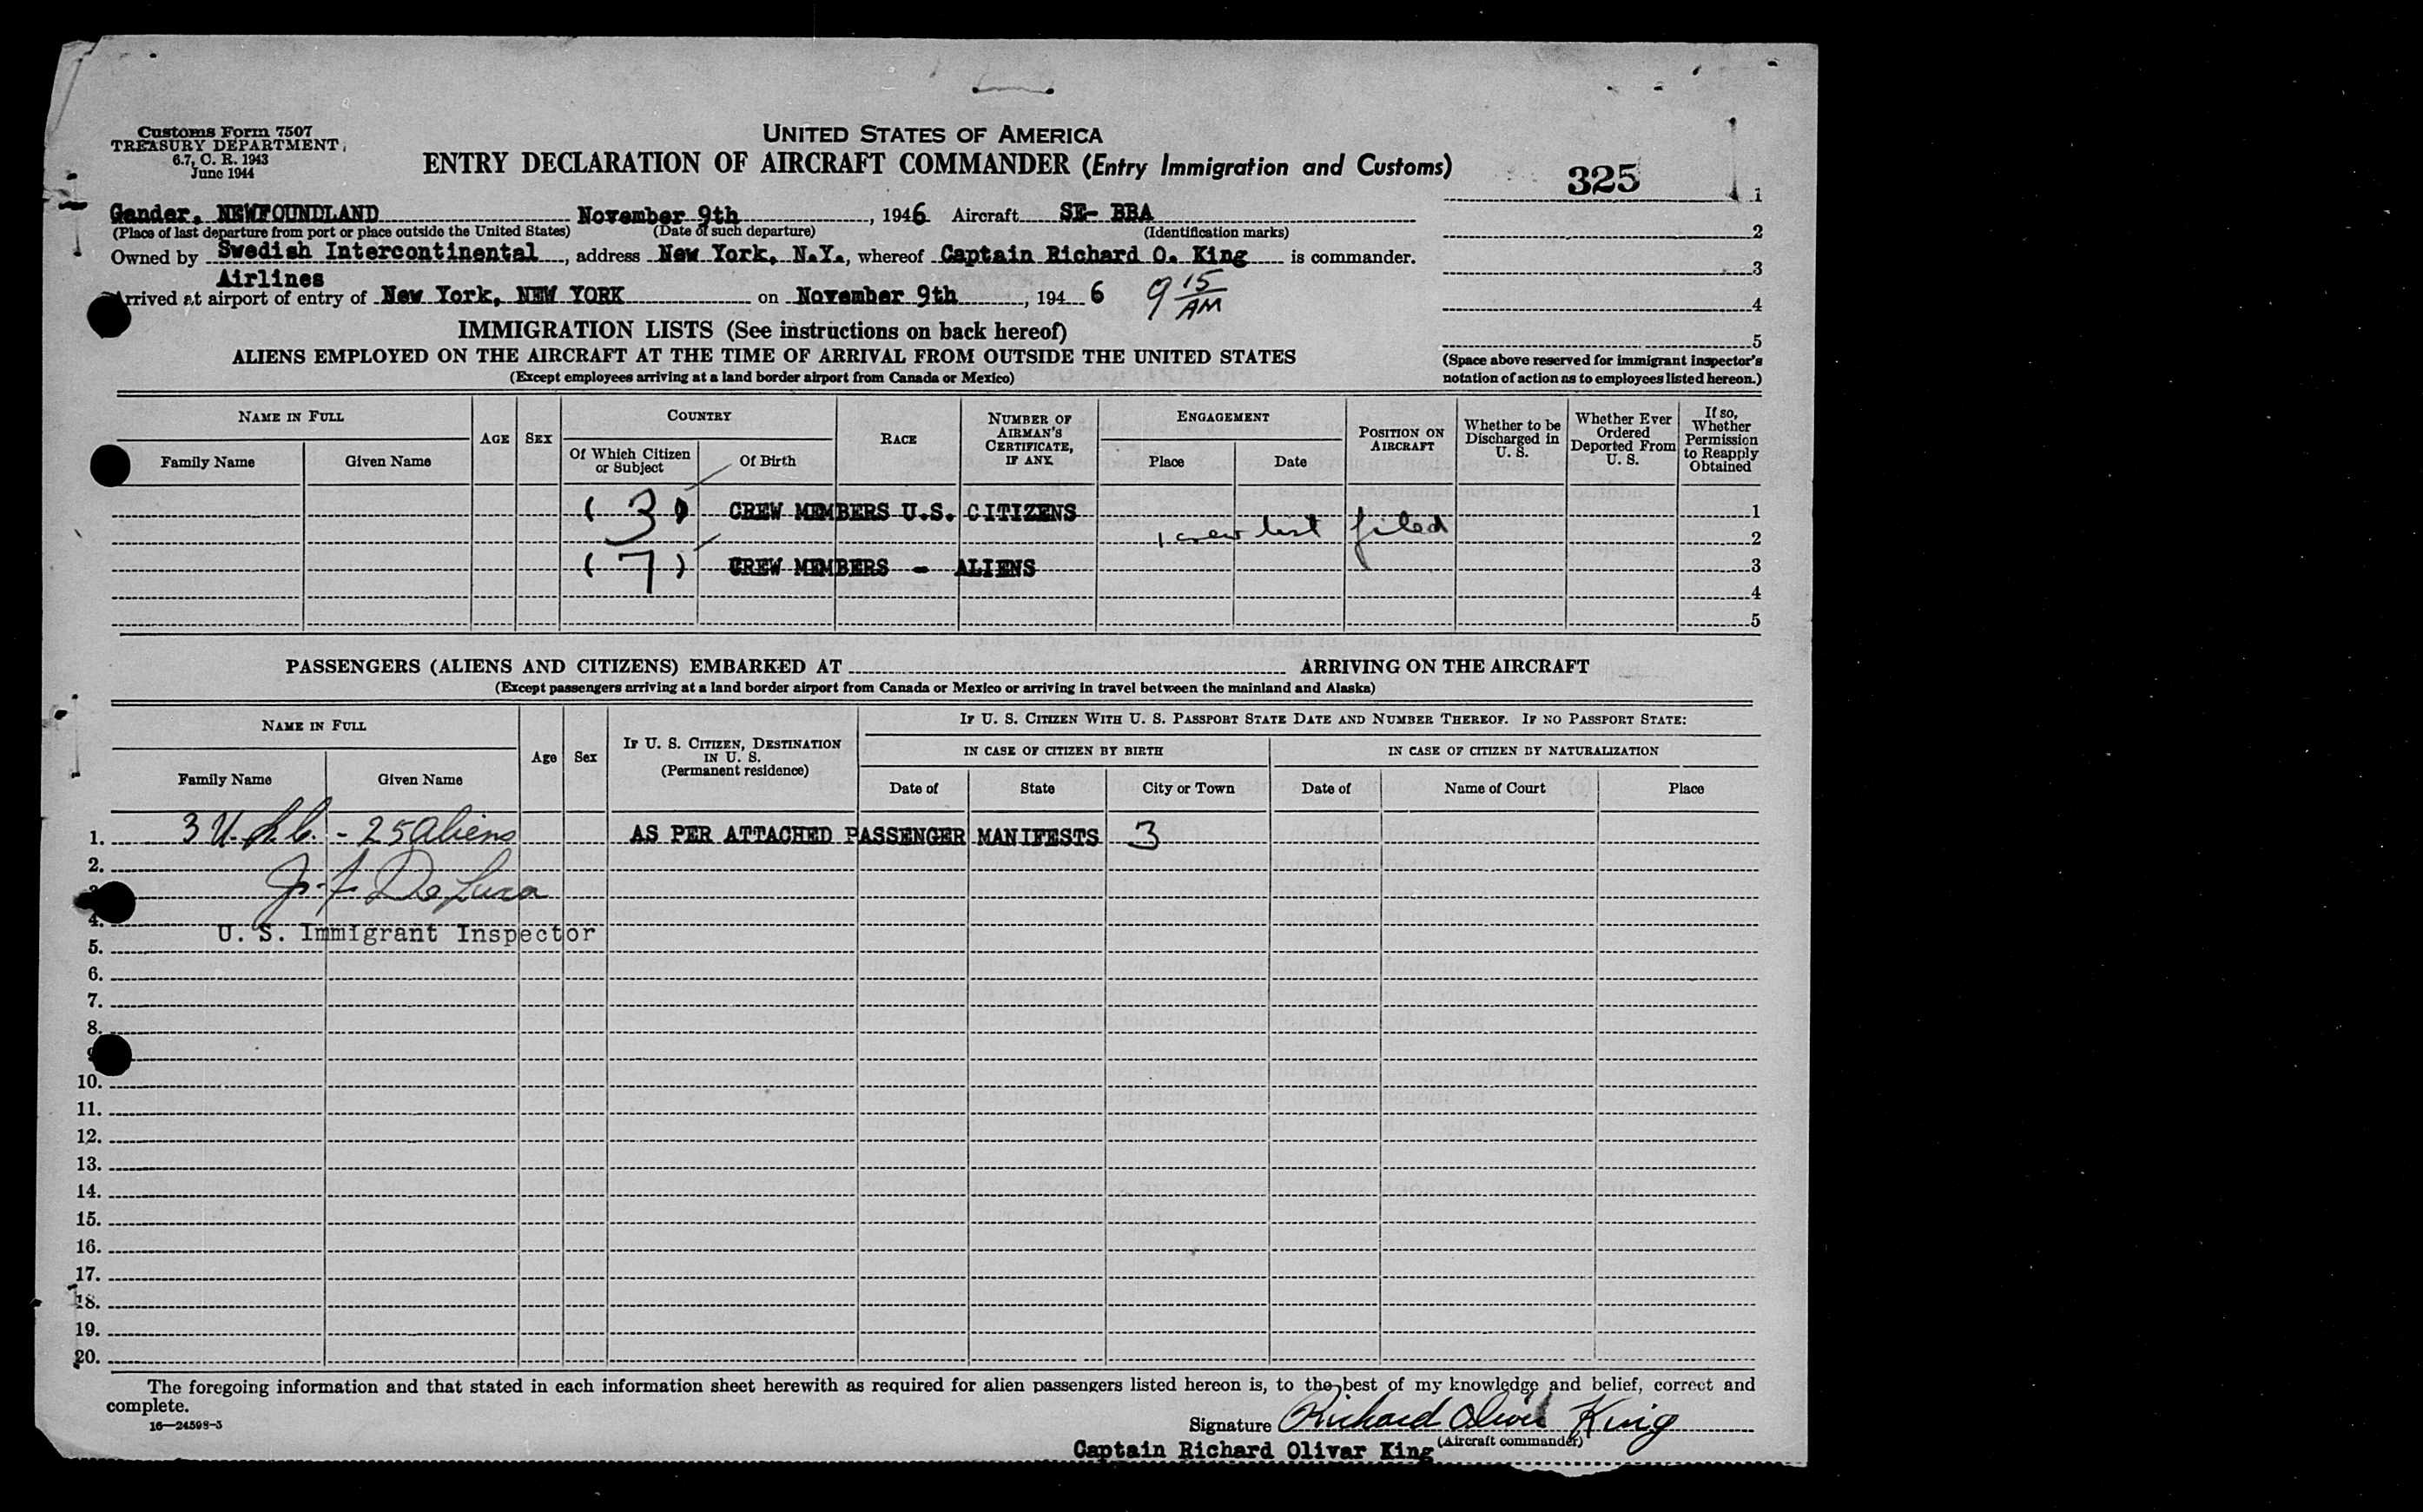 Customs Form 7507
TREASURY DEPARTMENT
6.7, C. R. 1943
June 1944
UNITED STATES OF AMERICA
ENTRY DECLARATION OF AIRCRAFT COMMANDER (Entry Immigration and Customs)
325
1
2
3
4
5
(Space above reserved for immigrant inspector's notation of action as to employees listed hereon.)
Gander, NEWFOUNDLAND November 9th, 1946 Aircraft SE- BBA
(Place of last departure from port or place outside the United States) (Date of such departure) (Identification marks)
Owned by Swedish Intercontinental, address New York, N.Y., whereof Captain Richard O. King is commander.
Airlines
Arrived at airport of entry of New York, NEW YORK on November 9th, 1946 9 15 AM
IMMIGRATION LISTS (See instructions on back hereof)
ALIENS EMPLOYED ON THE AIRCRAFT AT THE TIME OF ARRIVAL FROM OUTSIDE THE UNITED STATES
(Except employees arriving at a land border airport from Canada or Mexico)
NAME IN FULL
Family Name
Given Name
AGE
SEX
COUNTRY
Of Which Citizen or Subject
Of Birth
RACE
NUMBER OF AIRMAN'S CERTIFICATE, IF ANY
ENGAGEMENT
Place
Date
POSITION ON AIRCRAFT
Whether to be Discharged in U. S.
Whether Ever Ordered Deported From U. S.
If so, Whether Permission to Reapply Obtained
( 3 ) CREW MEMBERS U.S. CITIZENS 1
1 crew list filed 2
( 7 ) CREW MEMBERS - ALIENS 3
4
5
PASSENGERS (ALIENS AND CITIZENS) EMBARKED AT ARRIVING ON THE AIRCRAFT
(Except passengers arriving at a land border airport from Canada or Mexico or arriving in travel between the mainland and Alaska)
NAME IN FULL
Family Name
Given Name
Age
Sex
IF U. S. CITIZEN, DESTINATION IN U. S.
(Permanent residence)
IF U. S. CITIZEN WITH U. S. PASSPORT STATE DATE AND NUMBER THEREOF. IF NO PASSPORT STATE:
IN CASE OF CITIZEN BY BIRTH
IN CASE OF CITIZEN BY NATURALIZATION
Date of
State
City or Town
Date of
Name of Court
Place
1. 3 U.S.C. - 25 Aliens AS PER ATTACHED PASSENGER MANIFESTS 3
2.
J. F. De Luca
4.
U. S. Immigrant Inspector
5.
6.
7.
8.
10.
11.
12.
13.
14.
15.
16.
17.
18.
19.
20.
The foregoing information and that stated in each information sheet herewith as required for alien passengers listed hereon is, to the best of my knowledge and belief, correct and
complete.
16—24598-3
Signature Richard Oliver King
(Aircraft commander)
Captain Richard Olivar King